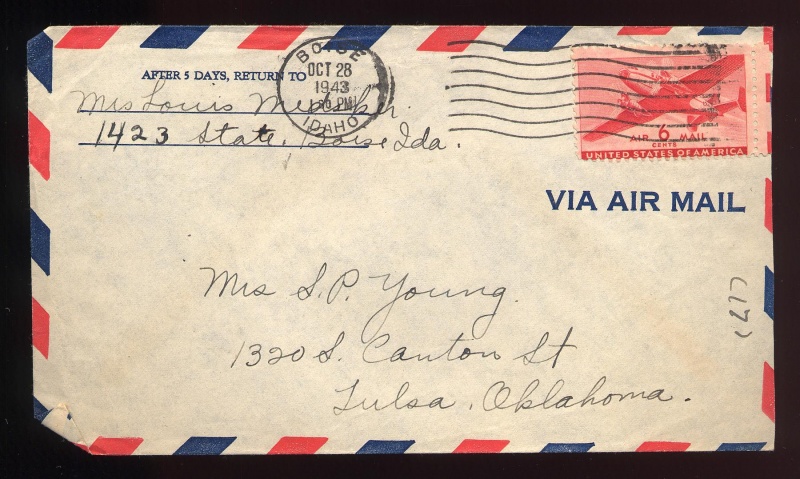 AFTER 5 DAYS, RETURN TO
Mrs Louis
1423 State, Boise Ida.
BOISE
OCT 28
1943
PM
IDAHO
AIR 6 MAIL
CENTS
UNITED STATES OF AMERICA
VIA AIR MAIL
Mrs S. P. Young.
1320 S. Canton St
Tulsa, Oklahoma.